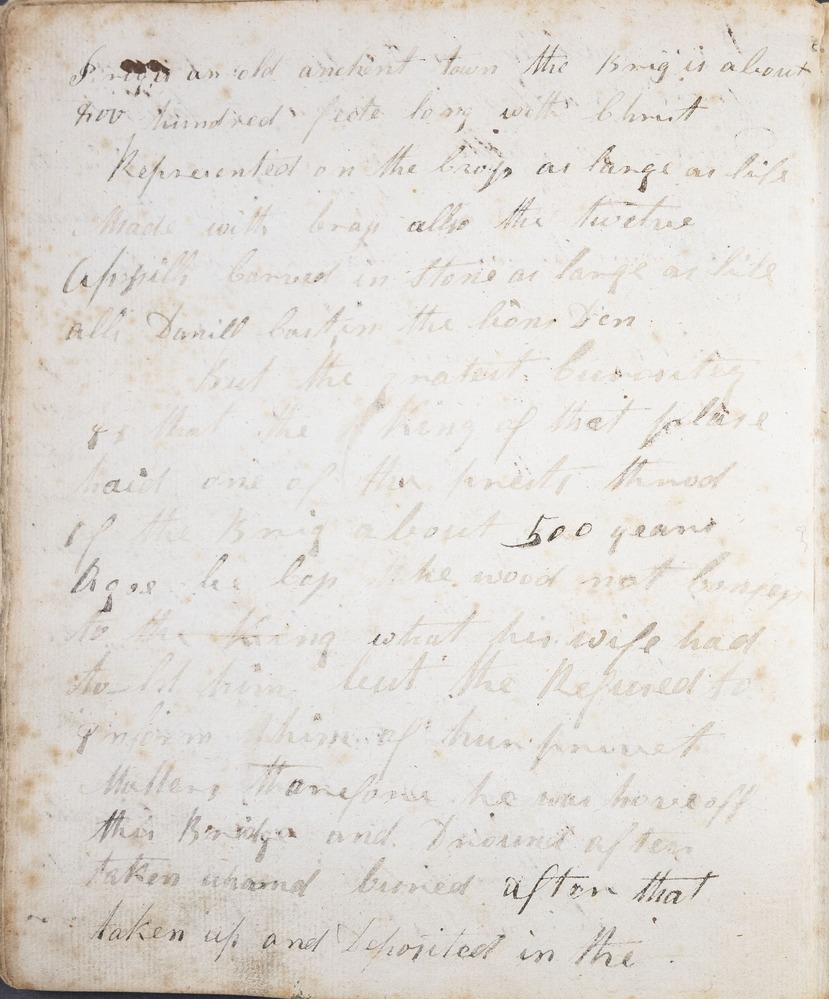 an old anchent town the Brig is about
hundred feete long with Christ
Represented on the Cross as large as life
Made with brass allso the twelve
Carved in Stone as large as life
Daniell Cast in the lions Den
but the gratest Curiositey
is that the King of that plase
haid one of the priests throd
of the Brig about 500 years
Agoe be Cas he wood not Confess
to the King what his wife had
to ld him but the Refused to
inform him of hur privet
Matters tharefore he was hove off
this Bridge and Dround after
taken up and buried after that
taken up and Deposited in the